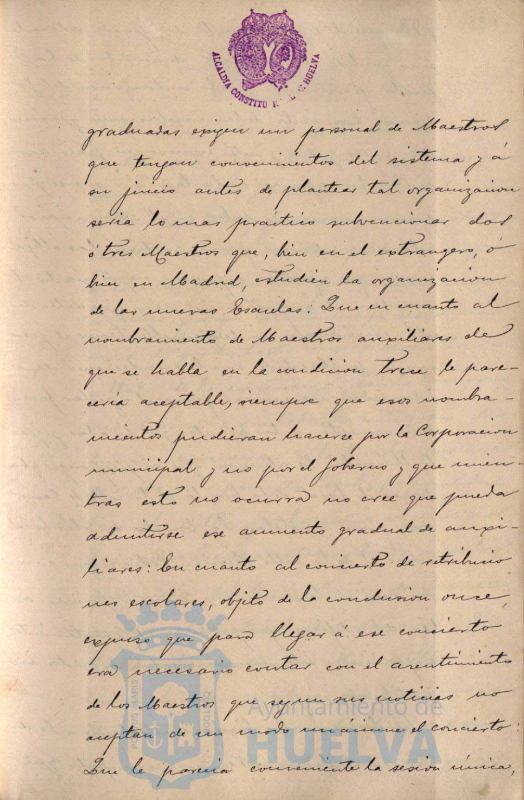 ALCALDIA CONSTITU HUELVA
graduadas exigen un personal de Maestros
que tengan convenimientos del sistema y á
su juicio antes de plantear tal organizacion
seria lo mas práctico subvencionar dos
ó tres Maestros que, bien en el extrangero, ó
bien en Madrid, estudien la organizacion
de las nuevas Escuelas: Que en cuanto al
nombramiento de Maestros auxiliares de
que se habla en la condicion trece le pare-
ceria aceptable, siempre que esos nombra-
mientos pudieran hacerse por la Corporacion
municipal y no por el Gobierno y que mien-
tras esto no ocurra no cree que pueda
admitirse ese aumento gradual de auxi-
liares: En cuánto al concierto de retribucio
nes escolares, objeto de la conclusion once,
expuso que para llegar á ese concierto
era necesario contar con el asentimiento
de los Maestros que segun sus noticias no
aceptan de un modo unánime el concierto:
Que le parecia conveniente la sesion única,
Ayuntamiento de
HUELVA